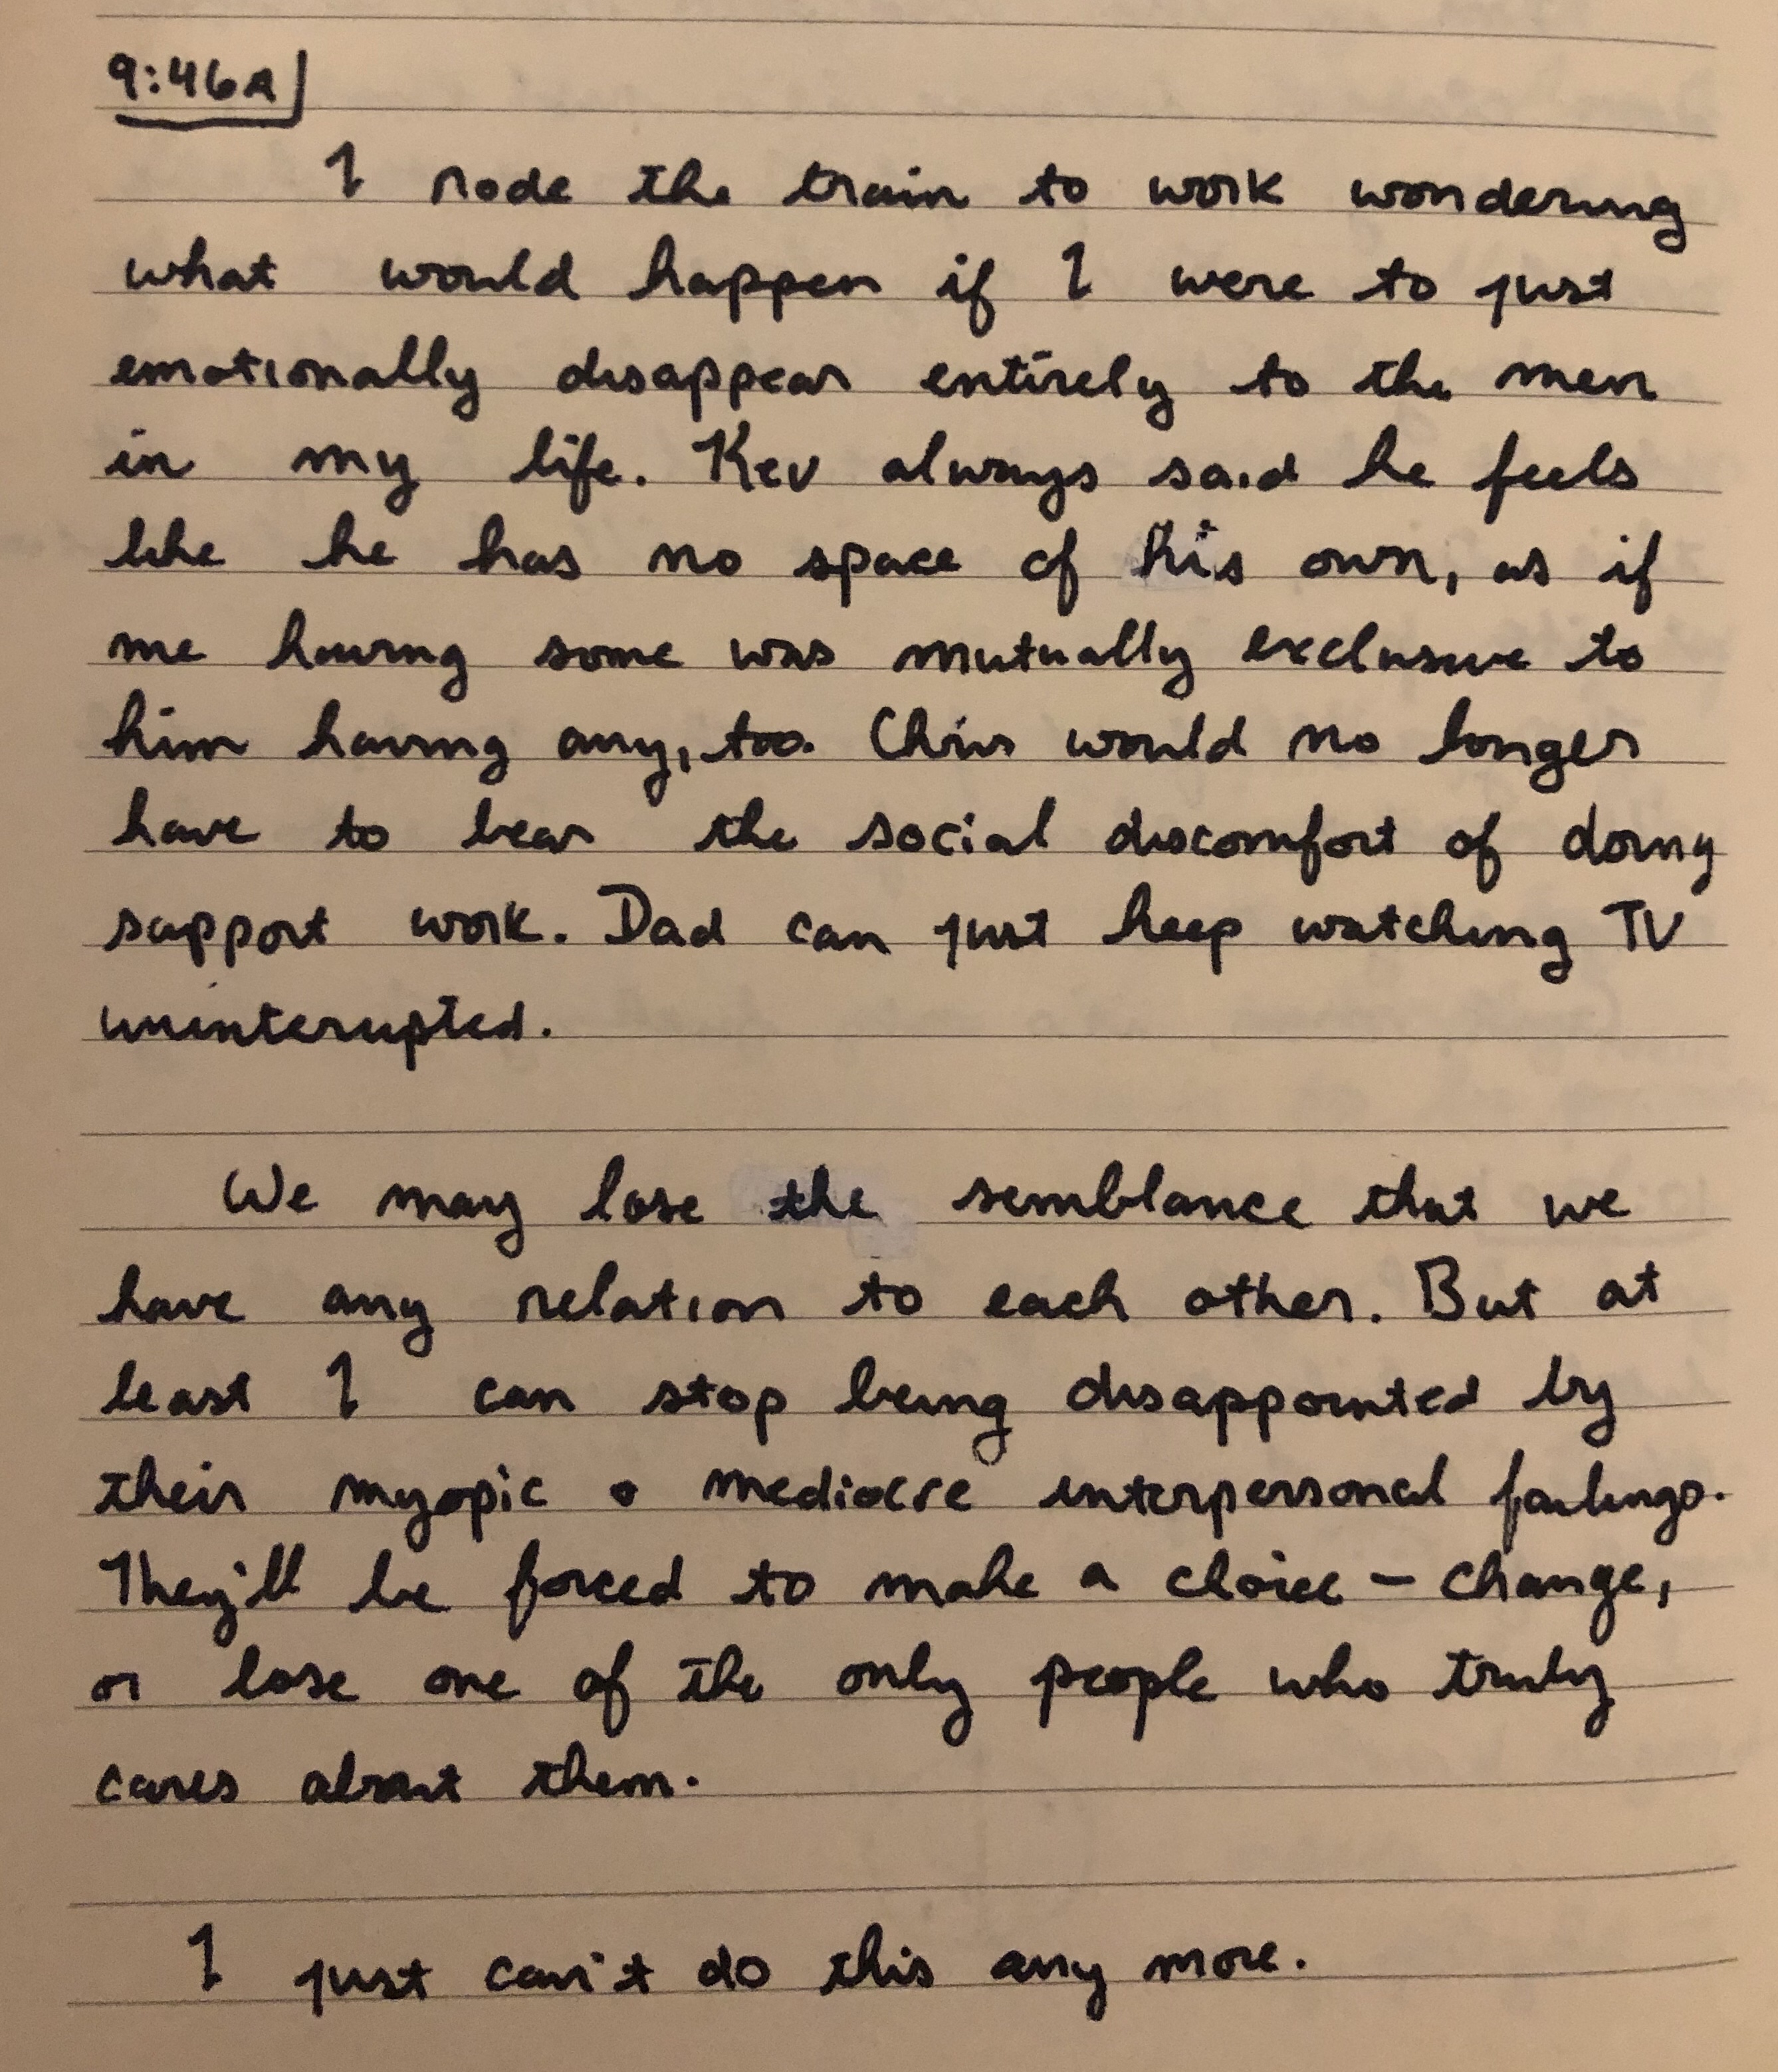 9:46A
I rode the train to work wondering
what would happen if I were to just
emotionally disappear entirely to the men
in my life. Kev always said he feels
like he has no space of his own, as if
me having some was mutually exclusive to
him having any, too. Chris would no longer
have to bear the social discomfort of doing
support work. Dad can just keep watching TV
uninterupted.
We may lose the semblance that we
have any relation to each other. But at
least I can stop being disappointed by
their myopic & mediocre interpersonal failings.
They'll be forced to make a choice - change,
or lose one of the only people who truly
cares about them.
I just can't do this any more.